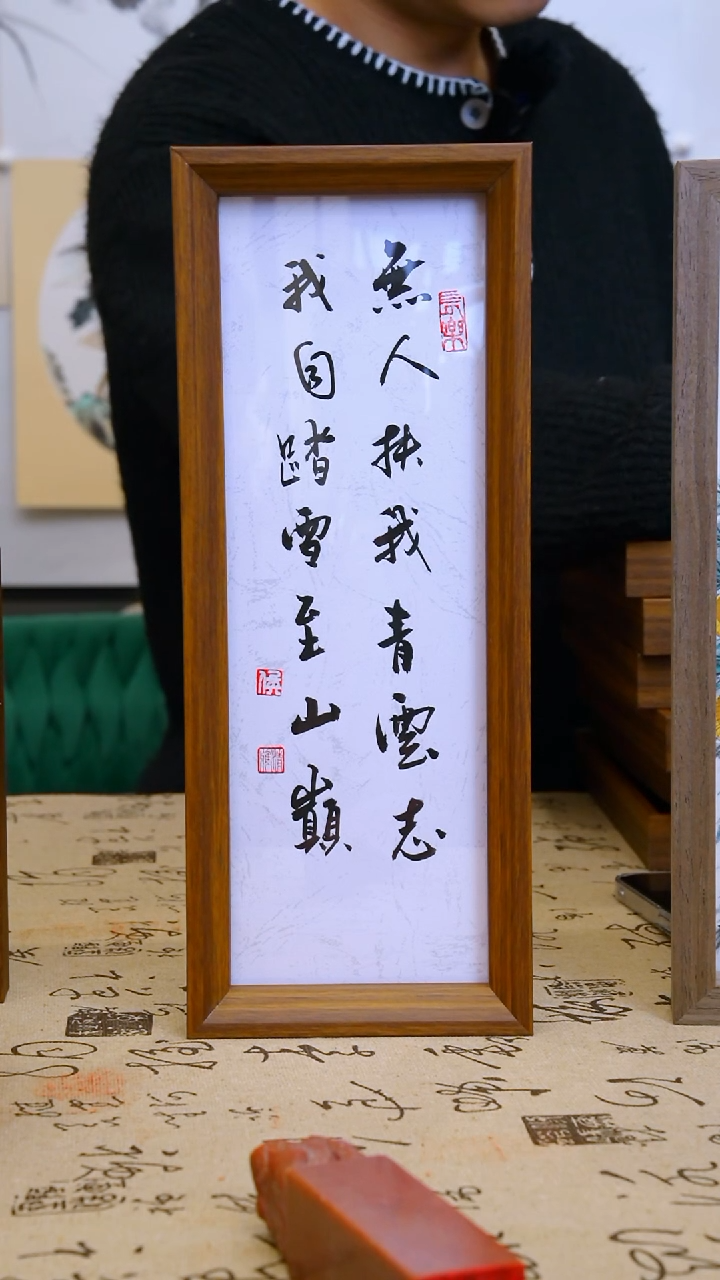 無人扶我青雲志
我自踏雪至山巔
長樂